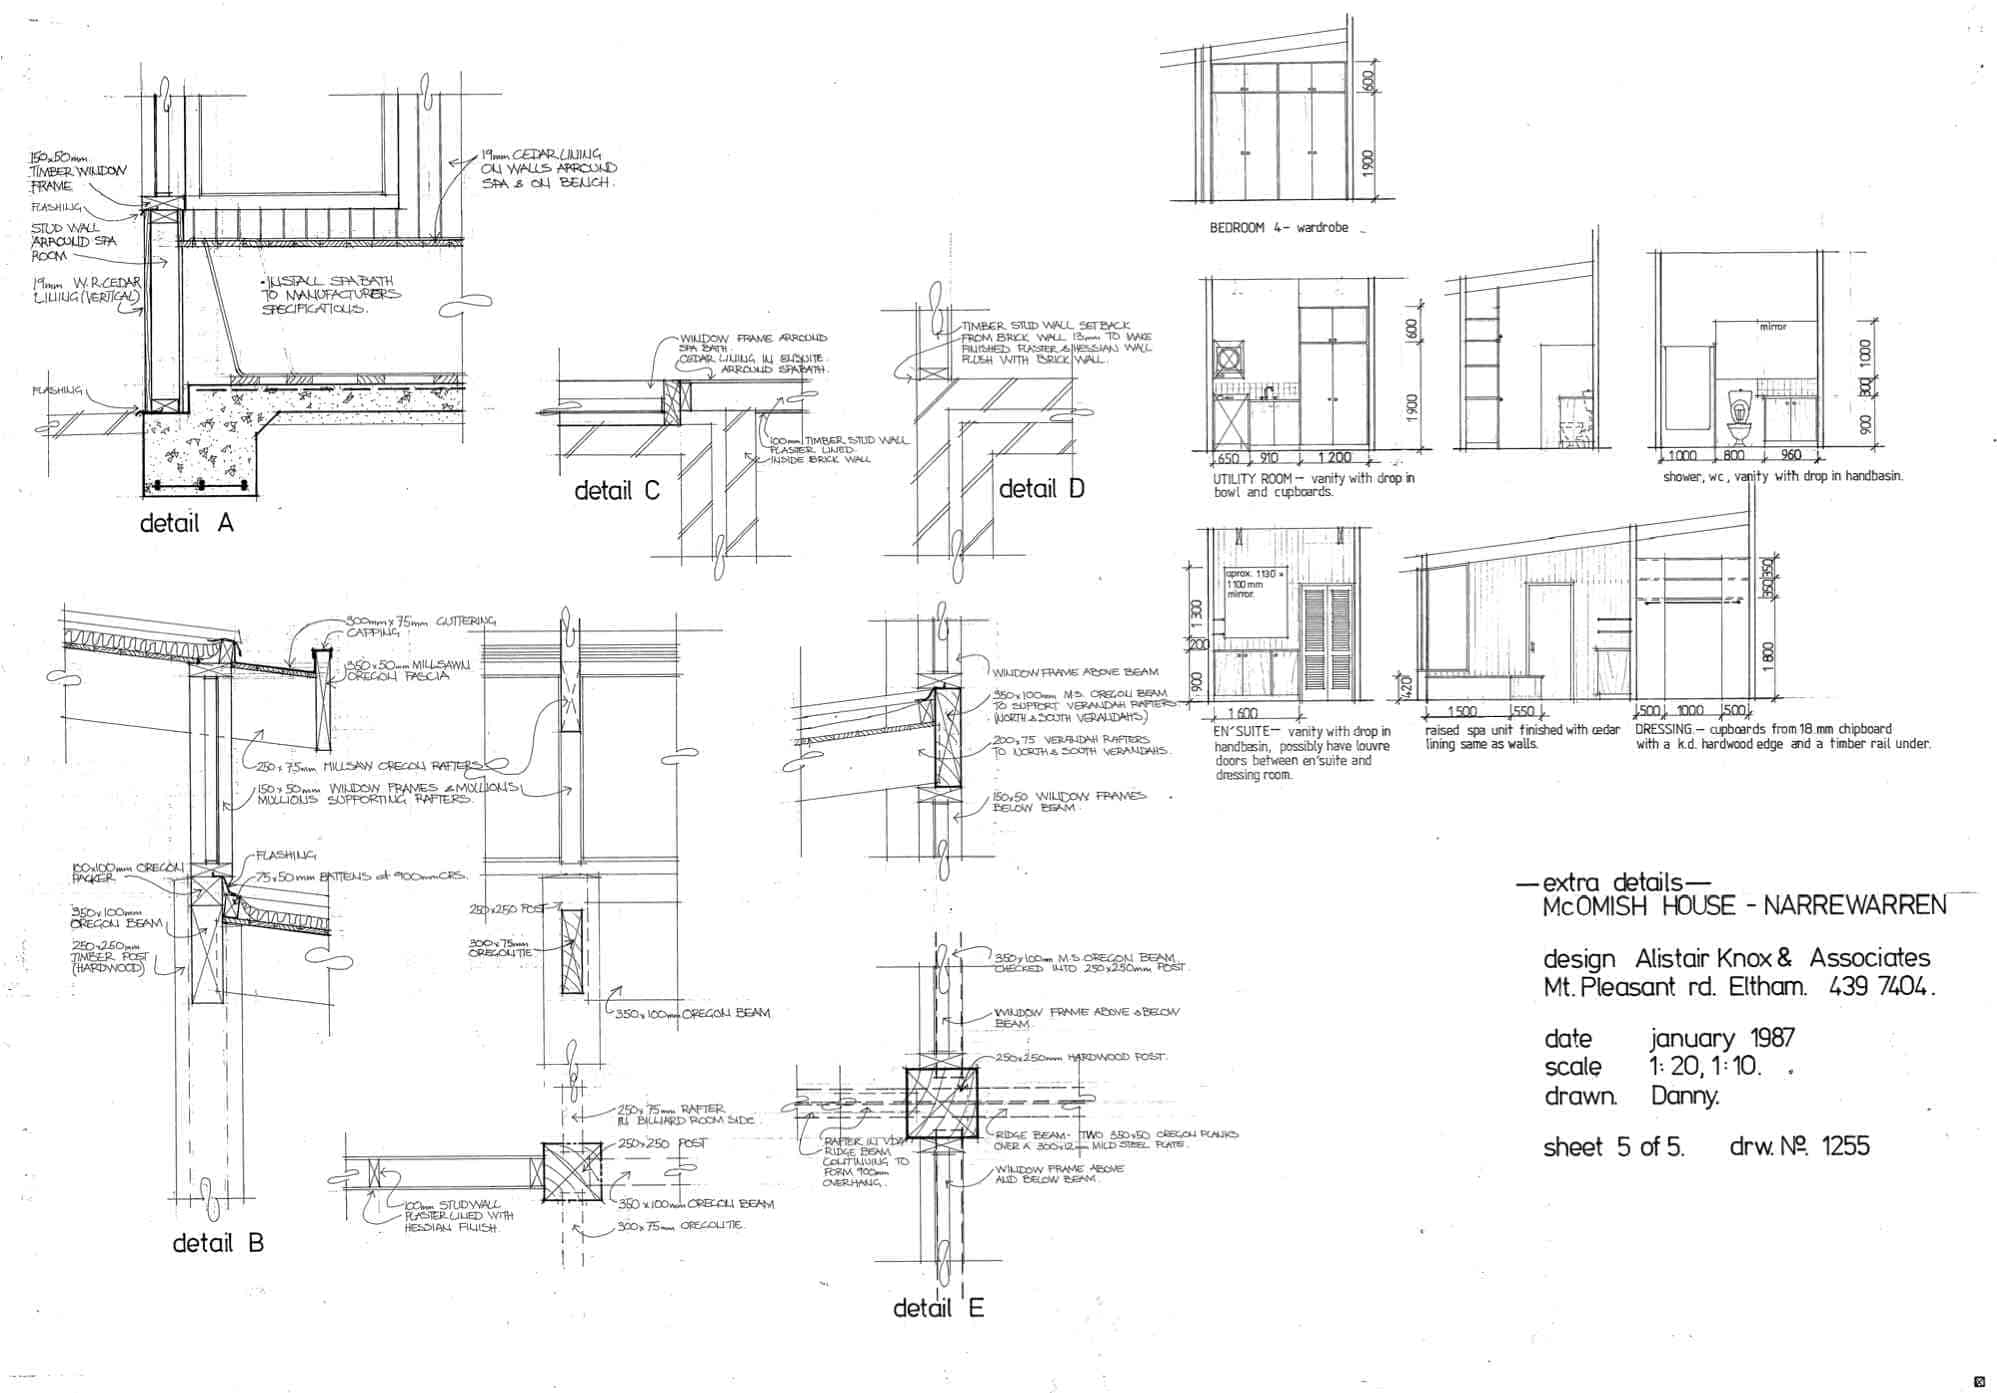 150x50mm
TIMBER WINDOW
FRAME
FLASHING
STUD WALL
ARROUND SPA
ROOM
19mm W.R. CEDAR
LINING (VERTICAL)
FLASHING
19mm CEDAR LINING
ON WALLS ARROUND
SPA & ON BENCH.
-INSTALL SPA BATH
TO MANUFACTURERS
SPECIFICATIONS.
detail A
WINDOW FRAME ARROUND
SPA BATH.
CEDAR LINING IN ENSUITE.
ARROUND SPABATH.
100mm TIMBER STUD WALL
PLASTER LINED.
INSIDE BRICK WALL
detail C
TIMBER STUD WALL SET BACK
FROM BRICK WALL 13mm TO MAKE
FINISHED PLASTER & HESSIAN WALL
FLUSH WITH BRICK WALL.
detail D
600
1900
BEDROOM 4- wardrobe
600
1900
650 910 1200
UTILITY ROOM - vanity with drop in
bowl and cupboards.
mirror
1000
300
900
1000 800 960
shower, wc, vanity with drop in handbasin.
aprox. 1130 x
1100mm
mirror.
1300
200
900
1600
EN'SUITE- vanity with drop in
handbasin, possibly have louvre
doors between en'suite and
dressing room.
420
1500 550
raised spa unit finished with cedar
lining same as walls.
350
350
1800
500 1000 500
DRESSING.- cupboards from 18.mm chipboard
with a k.d. hardwood edge and a timber rail under.
300mm x 75mm GUTTERING
CAPPING
350x50mm MILLSAWN
OREGON FASCIA
250x75mm MILLSAW OREGON RAFTERS
150x50mm WINDOW FRAMES & MULLIONS
MULLIONS SUPPORTING RAFTERS.
100x100mm OREGON
PACKER
FLASHING
75x50mm BATTENS at 900mm CRS.
350x100mm
OREGON BEAM
250x250mm
TIMBER POST
(HARDWOOD)
detail B
250x250 POST
300x75mm
OREGON TIE
350x100mm OREGON BEAM
250x75mm RAFTER
IN BILLIARD ROOM SIDE.
250x250 POST
350x100mm OREGON BEAM
300x75mm OREGON TIE.
100mm STUD WALL
PLASTER LINED WITH
HESSIAN FINISH.
WINDOW FRAME ABOVE BEAM
350x100mm M.S. OREGON BEAM
TO SUPPORT VERANDAH RAFTERS.
(NORTH & SOUTH VERANDAHS)
200x75 VERANDAH RAFTERS
TO NORTH & SOUTH VERANDAHS.
150x50 WINDOW FRAMES
BELOW BEAM.
350x100mm M.S. OREGON BEAM
CHECKED INTO 250x250mm POST.
WINDOW FRAME ABOVE & BELOW
BEAM.
250x250mm HARDWOOD POST.
RIDGE BEAM- TWO 350x50 OREGON PLANKS
OVER A 300x12mm MILD STEEL PLATE.
RAFTER IN VDA
RIDGE BEAM
CONTINUING TO
FORM 900mm
OVERHANG.
WINDOW FRAME ABOVE
AND BELOW BEAM.
detail E
—extra details—
McOMISH HOUSE - NARREWARREN
design Alistair Knox & Associates
Mt. Pleasant rd. Eltham. 439 7404.
date january 1987
scale 1:20, 1:10.
drawn. Danny.
sheet 5 of 5. drw. Nº. 1255